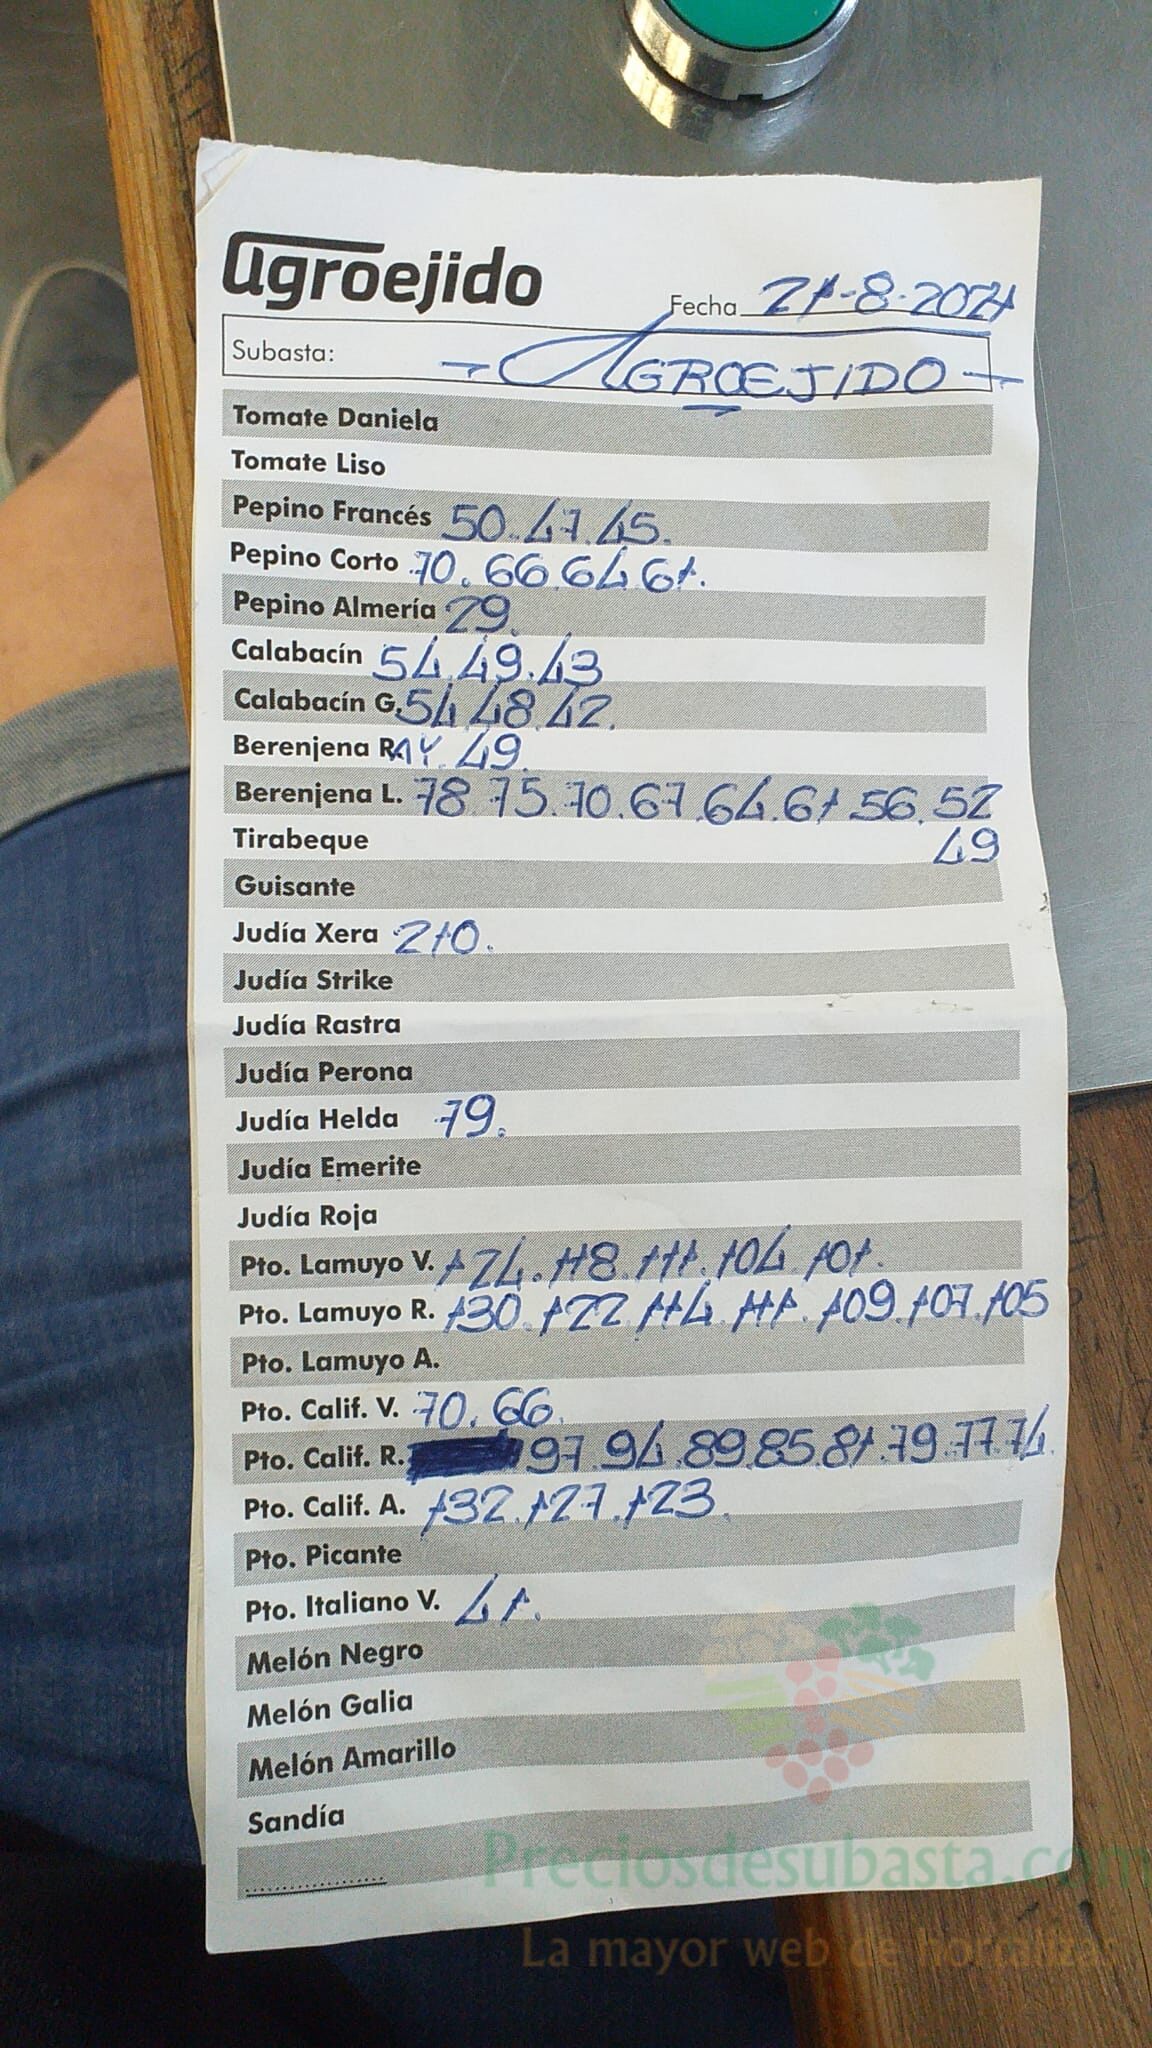 agroejido
Fecha 21-8-2021
Subasta: - AGROEJIDO -
Tomate Daniela
Tomate Liso
Pepino Francés 50.47.45.
Pepino Corto 70.66.64.61.
Pepino Almería 29.
Calabacín 54.49.43
Calabacín G. 54.48.42.
Berenjena R. AY. 49.
Berenjena L. 78.75.70.67.64.61.56.52
49
Tirabeque
Guisante
Judía Xera 210.
Judía Strike
Judía Rastra
Judía Perona
Judía Helda 79.
Judía Emerite
Judía Roja
Pto. Lamuyo V. 124.118.111.104.101.
Pto. Lamuyo R. 130.122.114.111.109.107.105
Pto. Lamuyo A.
Pto. Calif. V. 70.66.
Pto. Calif. R. 97.94.89.85.81.79.77.74.
Pto. Calif. A. 132.127.123.
Pto. Picante
Pto. Italiano V. 41.
Melón Negro
Melón Galia
Melón Amarillo
Sandía
Preciosdesubasta.com
La mayor web de hortalizas